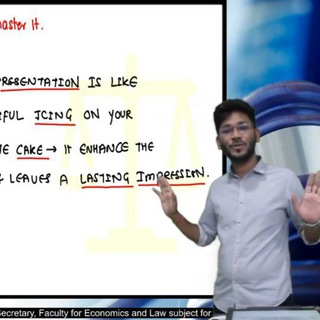 master it.
PRESENTATION IS LIKE
FUL ICING ON YOUR
E CAKE → It ENHANCE THE
G LEAVES A LASTING IMPRESSION.
Secretary, Faculty for Economics and Law subject for